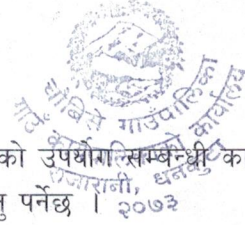 चौबिसे गाउँपालिका
गाउँ कार्यपालिकाको कार्यालय
राजारानी, धनकुटा
२०७३
को उपयोग सम्बन्धी का
नु पर्नेछ ।